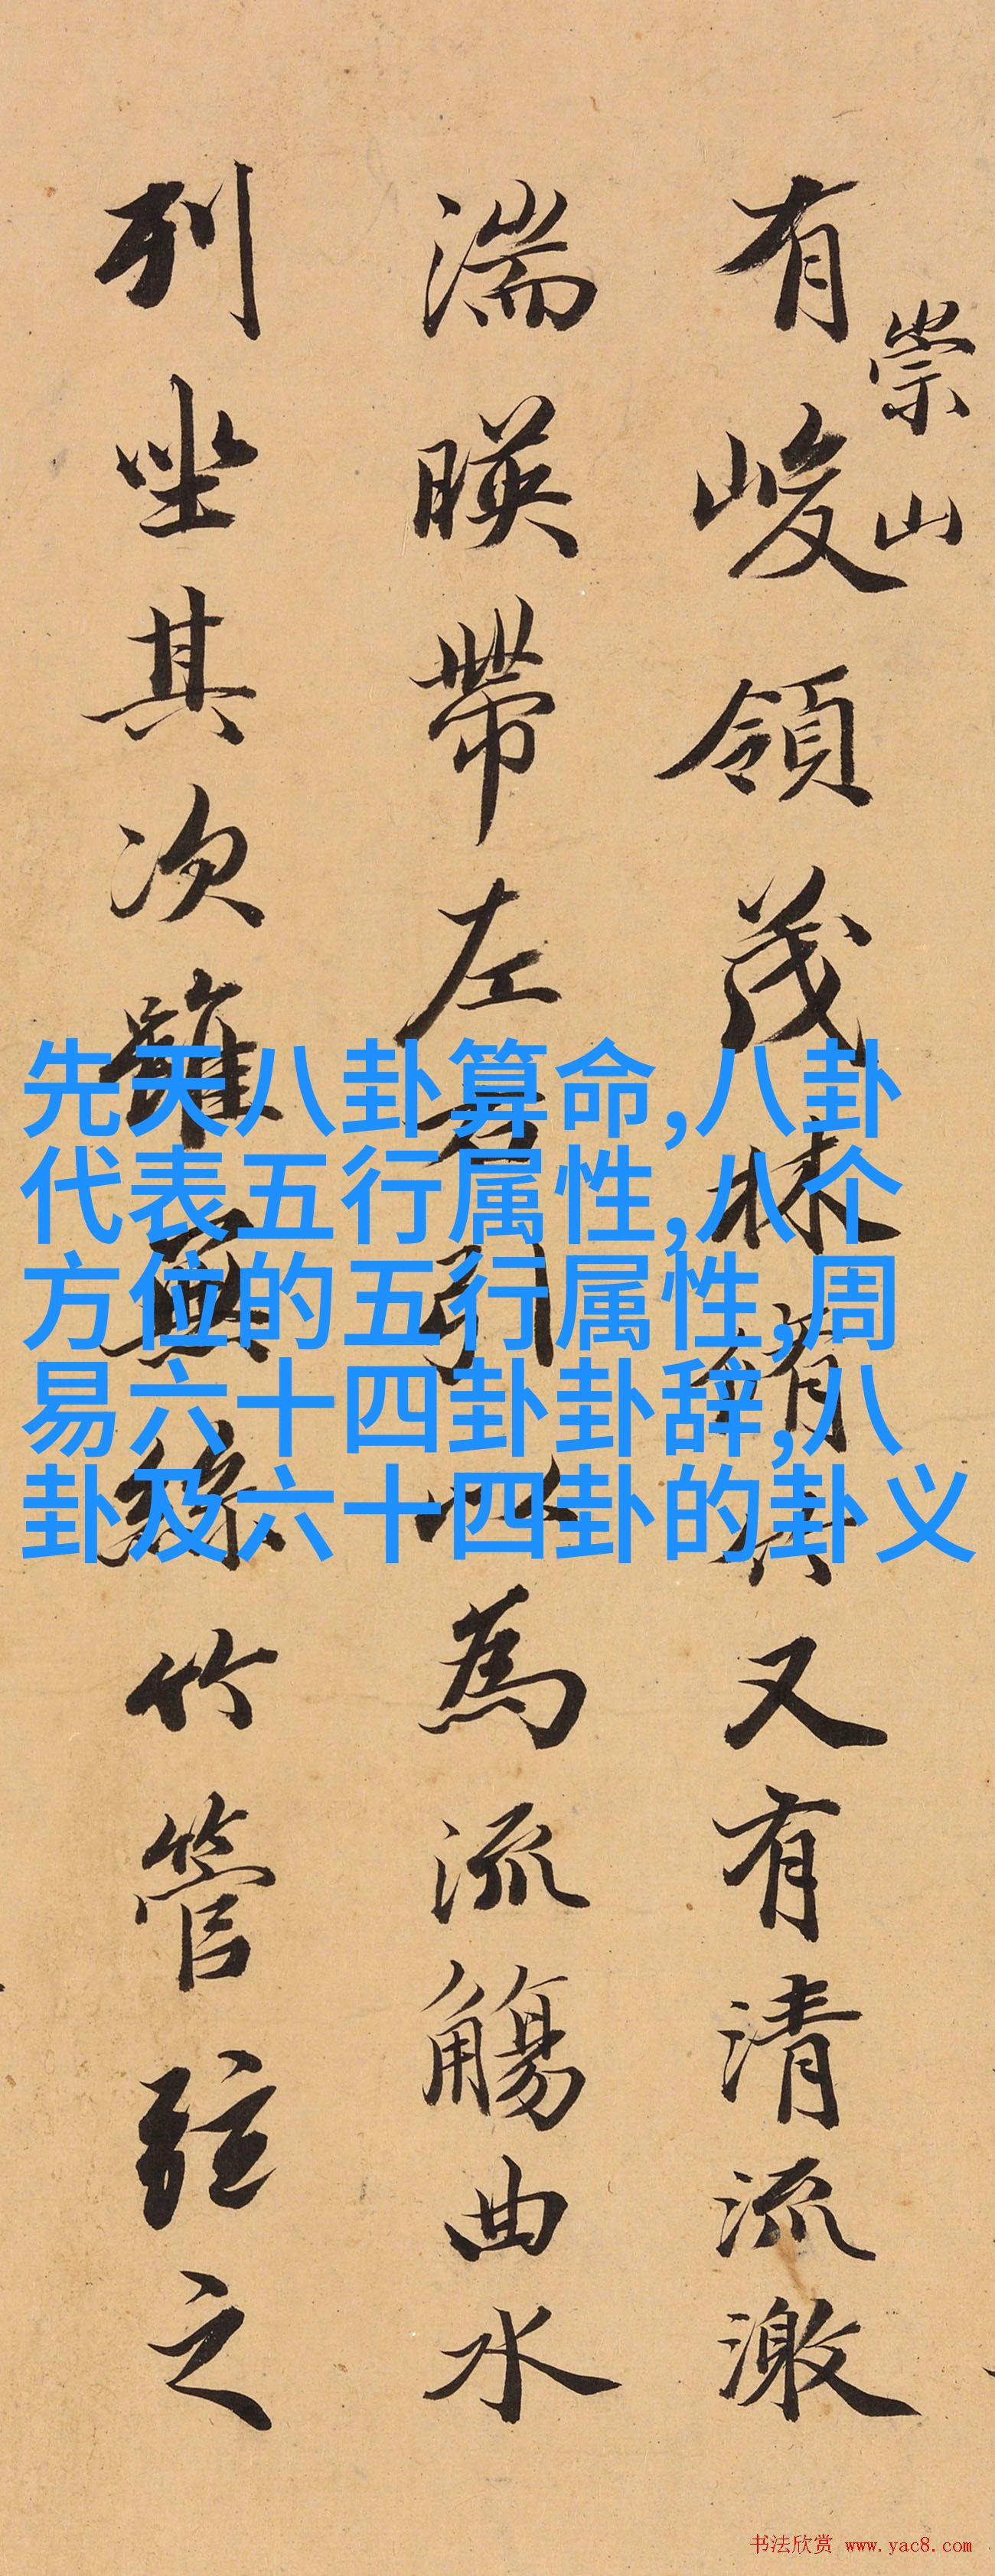 崇山
有峻領茂林脩竹又有清流激
湍暎帶左右引以為流觴曲水
列坐其次雖無絲竹管弦之
先天八卦算命,八卦
代表五行属性,八个
方位的五行属性,周
易六十四卦卦辞,八
卦及六十四卦的卦义
书法欣赏 www.yac8.com